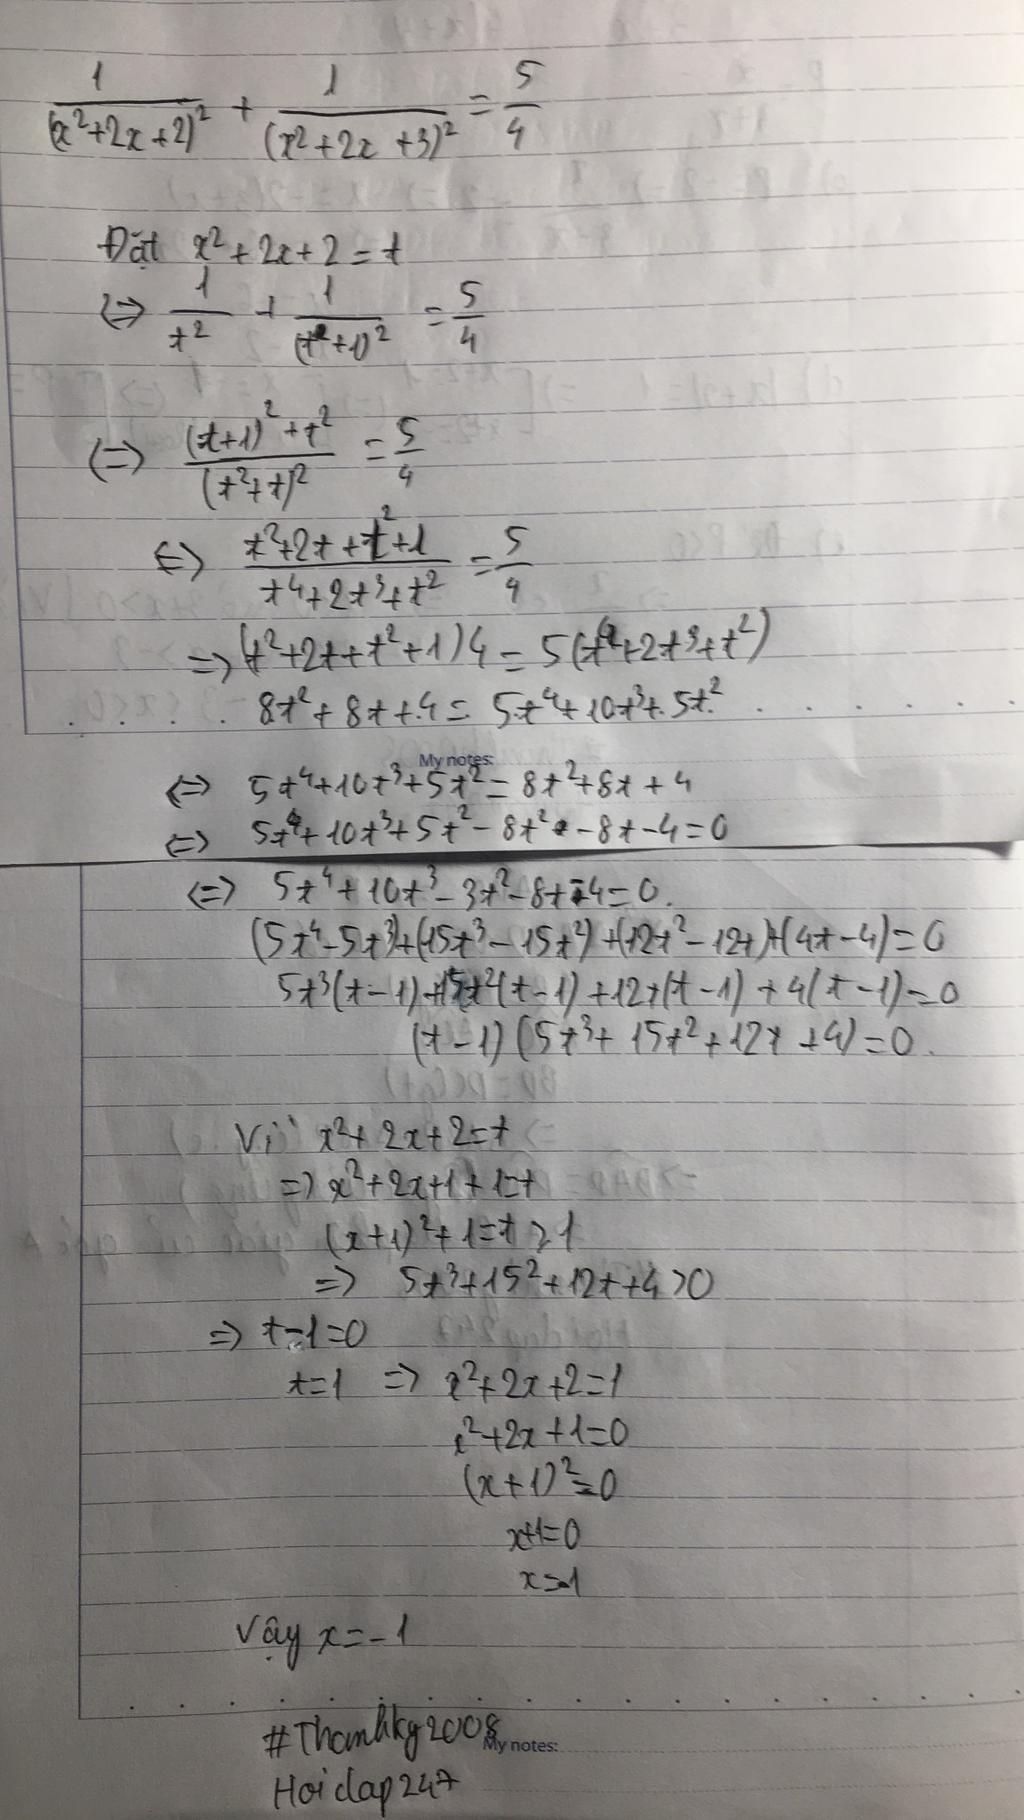 1/(x²+2x+2)² + 1/(x²+2x+3)² = 5/4
Đặt x²+2x+2=t
<=> 1/t² + 1/(t+1)² = 5/4
<=> ((t+1)²+t²)/(t²+t)² = 5/4
<=> (t²+2t+t²+1)/(t⁴+2t³+t²) = 5/4
=> (t²+2t+t²+1)4 = 5(t⁴+2t³+t²)
8t²+8t+4 = 5t⁴+10t³+5t²
My notes:
<=> 5t⁴+10t³+5t² = 8t²+8t+4
<=> 5t⁴+10t³+5t²-8t²-8t-4=0
<=> 5t⁴+10t³-3t²-8t-4=0.
(5t⁴-5t³)+(15t³-15t²)+(12t²-12t)+(4t-4)=0
5t³(t-1)+15t²(t-1)+12t(t-1)+4(t-1)=0
(t-1)(5t³+15t²+12t+4)=0.
Vì x²+2x+2=t
=> x²+2x+1+1=t
(x+1)²+1=t≥1
=> 5t³+15²+12t+4>0
=> t-1=0
t=1 => x²+2x+2=1
x²+2x+1=0
(x+1)²=0
x+1=0
x=-1
Vậy x=-1
#Thanhkg2008
My notes:
Hoidap247